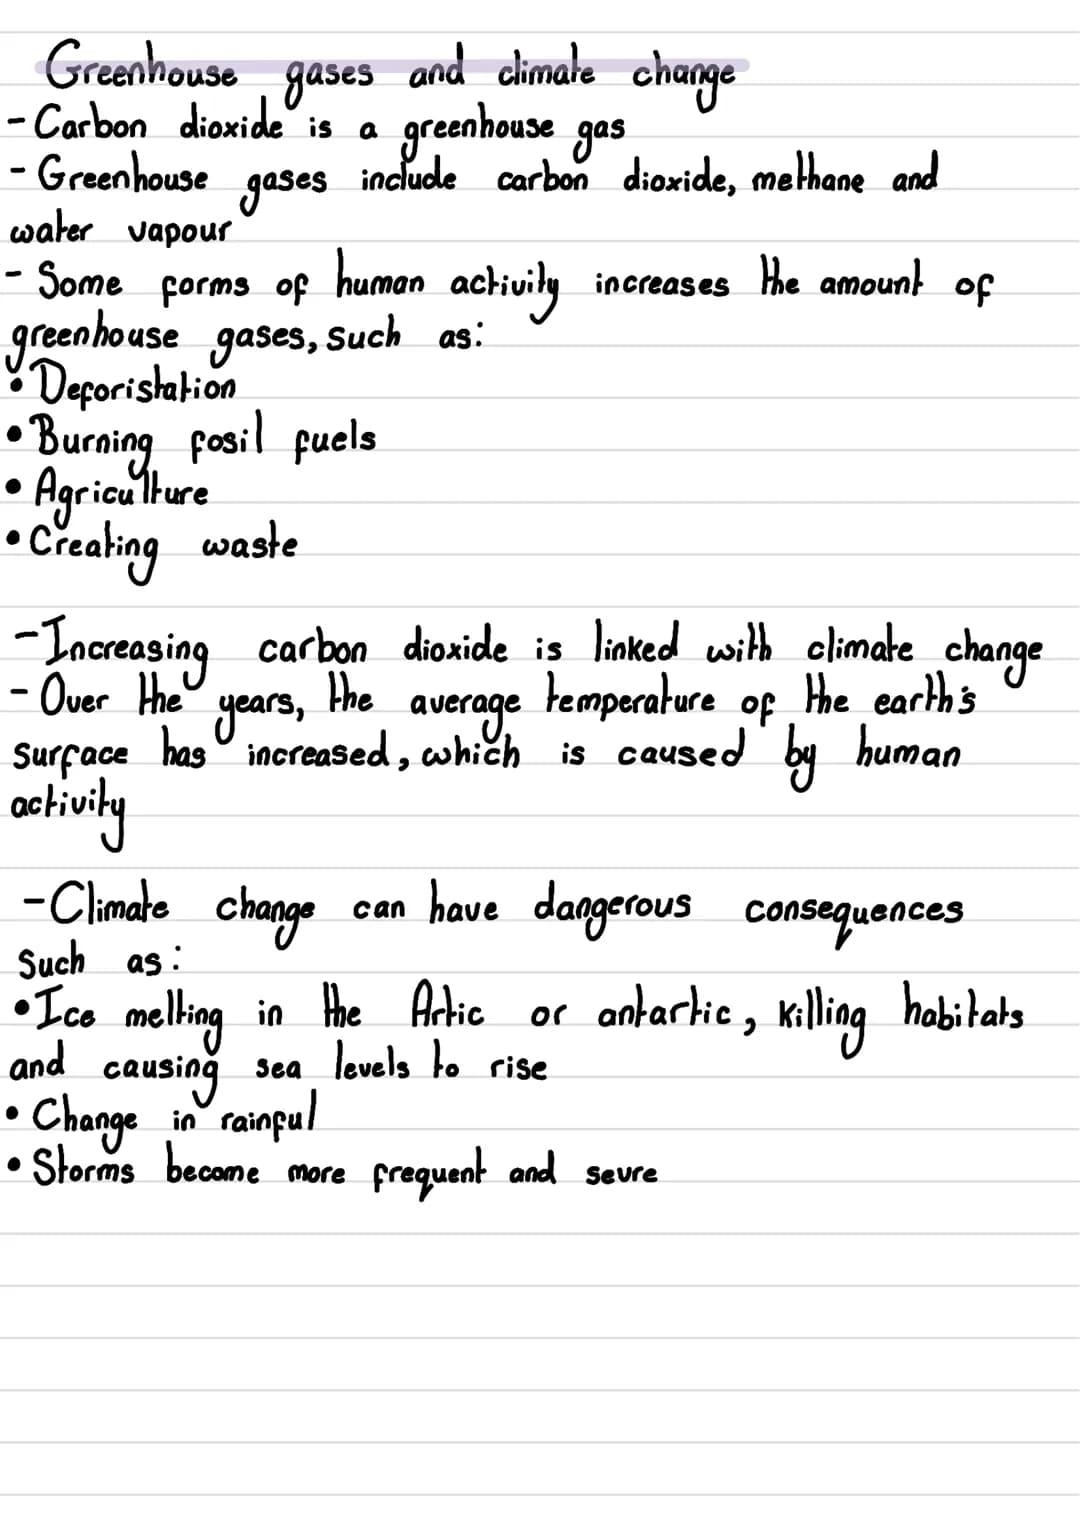 Greenhouse gases and climate change
- Carbon dioxide is a greenhouse gas
- Greenhouse gases include carbon dioxide, methane and
water vapour
- Some forms of human activity increases the amount of
greenhouse gases, such as:
• Deforistation
• Burning fosil fuels
• Agriculture
• Creating waste
- Increasing carbon dioxide is linked with climate change
- Over the years, the average temperature of the earth's
surface has increased, which is caused by human
activity
- Climate change can have dangerous consequences
Such as:
• Ice melting in the Artic or antartic, killing habitats
and causing sea levels to rise
• Change in rainful
• Storms become more frequent and sevre